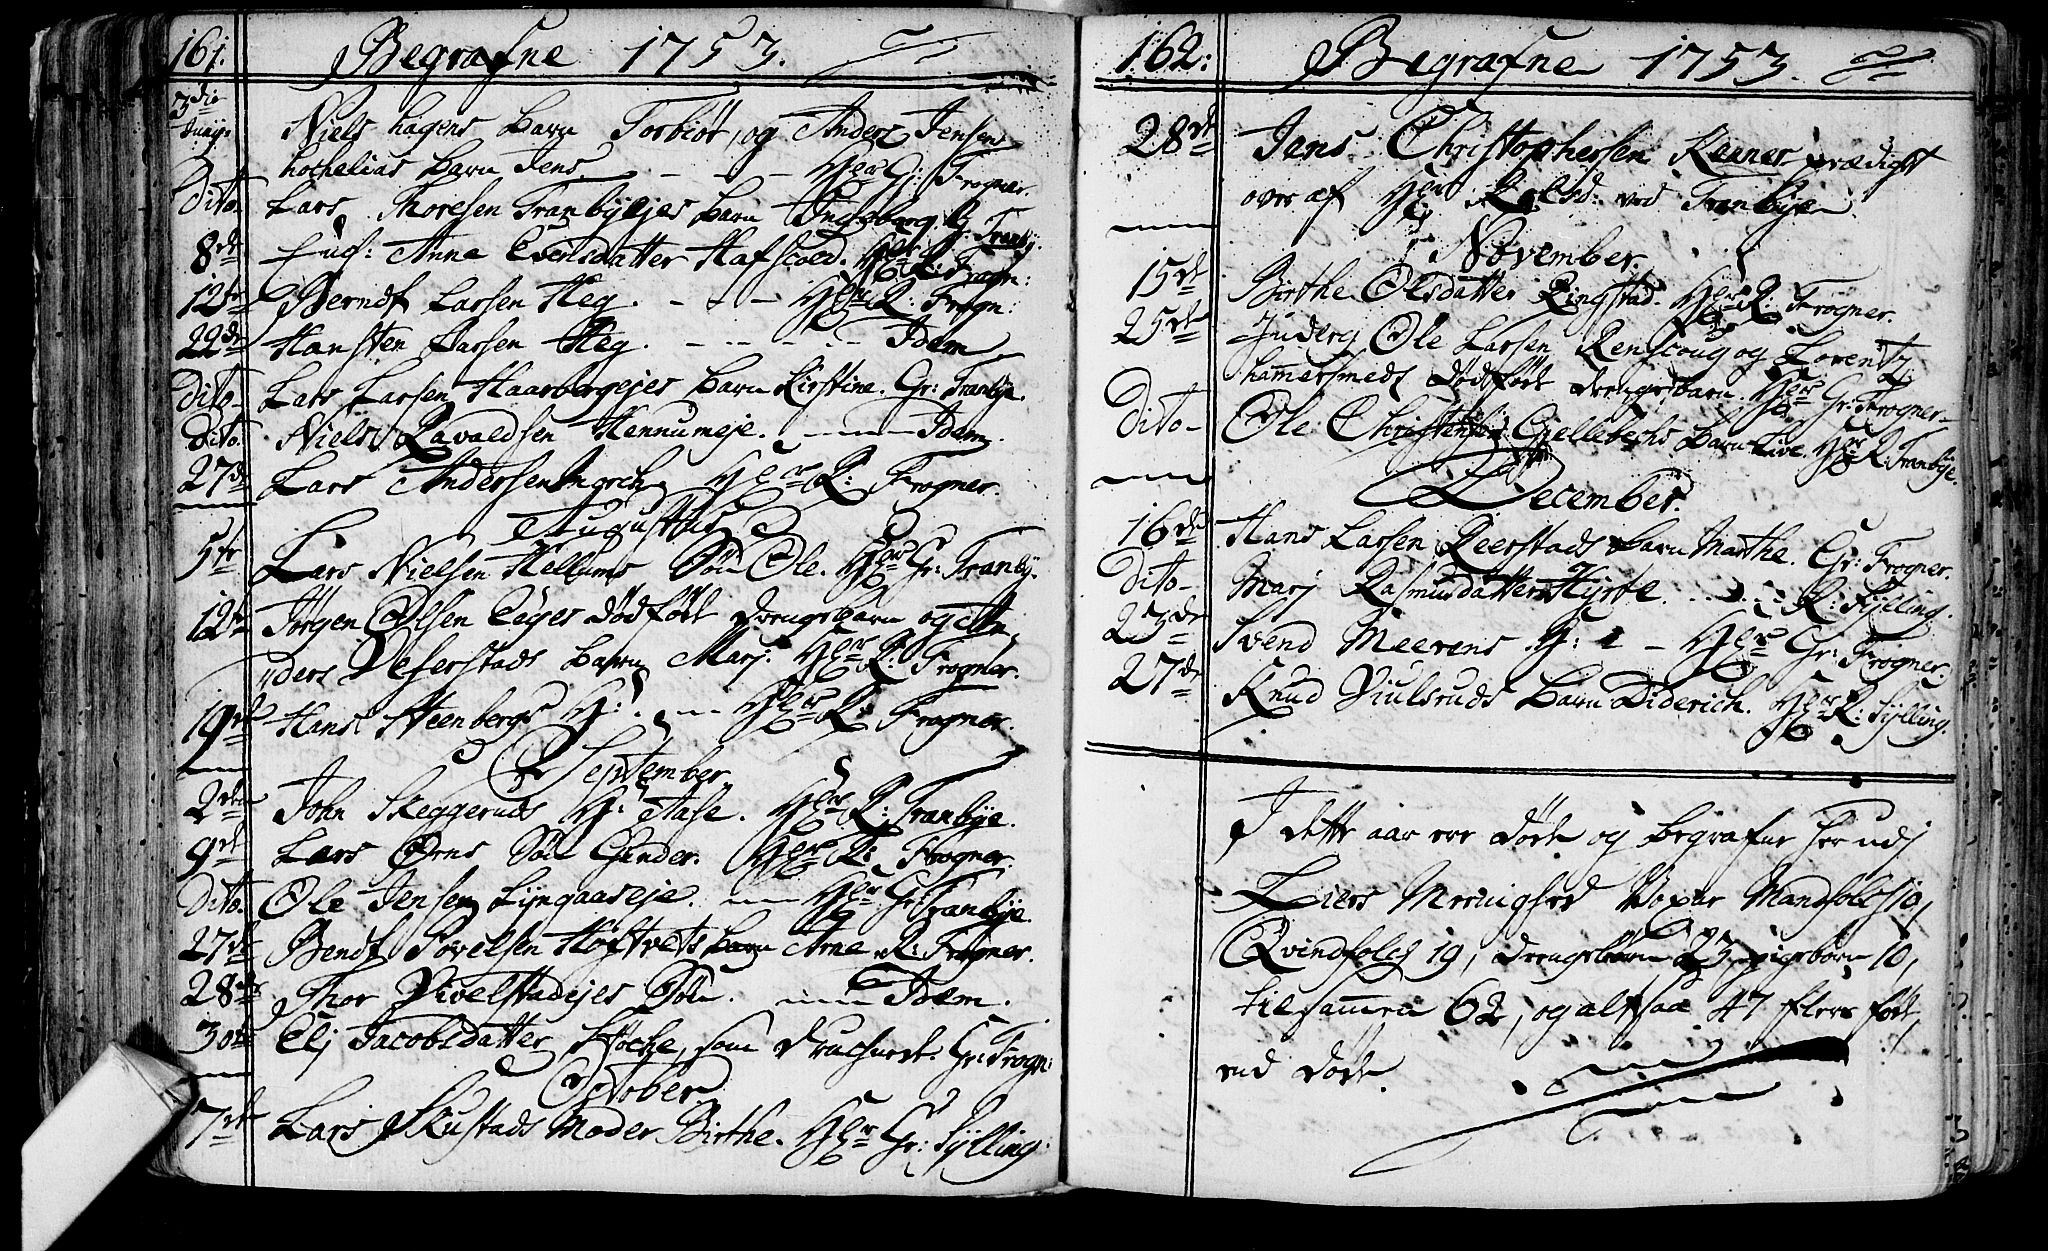 161.
Begrafne 1753.
3die Niels hagens barn Torbiør, og Anders Jensen
barn Jens. - - - Hr Gr: Frogner.
Dito- Lars Thoresen Tranbyejes barn Ingeborg Gr: Tranby.
8de Anne Evensdatter Hafscoed. Hr R: Frogn:
12te Berndt Larsen Heg. - - - Hr R: Frogn:
22de Hansten Larsen Heg. - - - - Idem
Dito- Lars Larsen Haarbergejes barn Kirstine. Gr: Tranbye.
Dito. Niels Ravaldsen Hennumeje. - - - Idem.
27de Lars Andersen Hr R: Frogner.
Augustus
5te Lars Nielsen Hellums Søn Ole. Hr Gr: Tranby.
12te Jørgen Olsen Eges dødfødt drengebarn og An-
ders barn Marj: Hr R: Frogner.
19de Hans Steenbergs H: Hr R: Frogner.
September
2den John Skeggeruds H: Aase. Hr R: Tranbye.
9de Lars Ørns Søn Gunder. Hr R: Frogner.
Dito. Ole Jensen Lyngaaseje. Hr Gr: Tranbye.
27de Bendt Povelsen Høgtvets barn Arne R: Frogner.
28de Thor Vivelstadejes Søn. Idem.
30te Elj Jacobsdatter Støche, som druchnede. Gr: Frogn:
October.
7de Lars Skustads Moder Birthe. Hr Gr: Sylling:
162:
Begrafne 1753.
28de Jens Christophersen Renner prædigt
over af Hr ved Tranbye.
November.
15de Birthe Olsdatter Ringstad. Hr R: Frogner.
25de Ole Larsen Renscoug og Lorentz
hamersmeds dødfødt drengebarn. Hr Gr: Frogner-
Dito- Ole Christensen Gjellebechs barn Live. Hr R: Tranbye.
December.
16de Hans Larsen Reerstads barn Marthe. Gr: Frogner.
Dito- Marj Rasmusdatter Hyrte. R: Sylling.
23de Svend Meerens H: - Hr Gr: Frogner.
27de Knud Viulsruds barn Diderich. Hr R: Sylling.
I dette aar ere døde og begrafne her udj
Liers Meenighed Voxne Mandfolch 10,
Qvindfolch 19, drengebørn 23, pigebørn 10,
tilsammen 62, og altsaa 47 flere født
end døde.